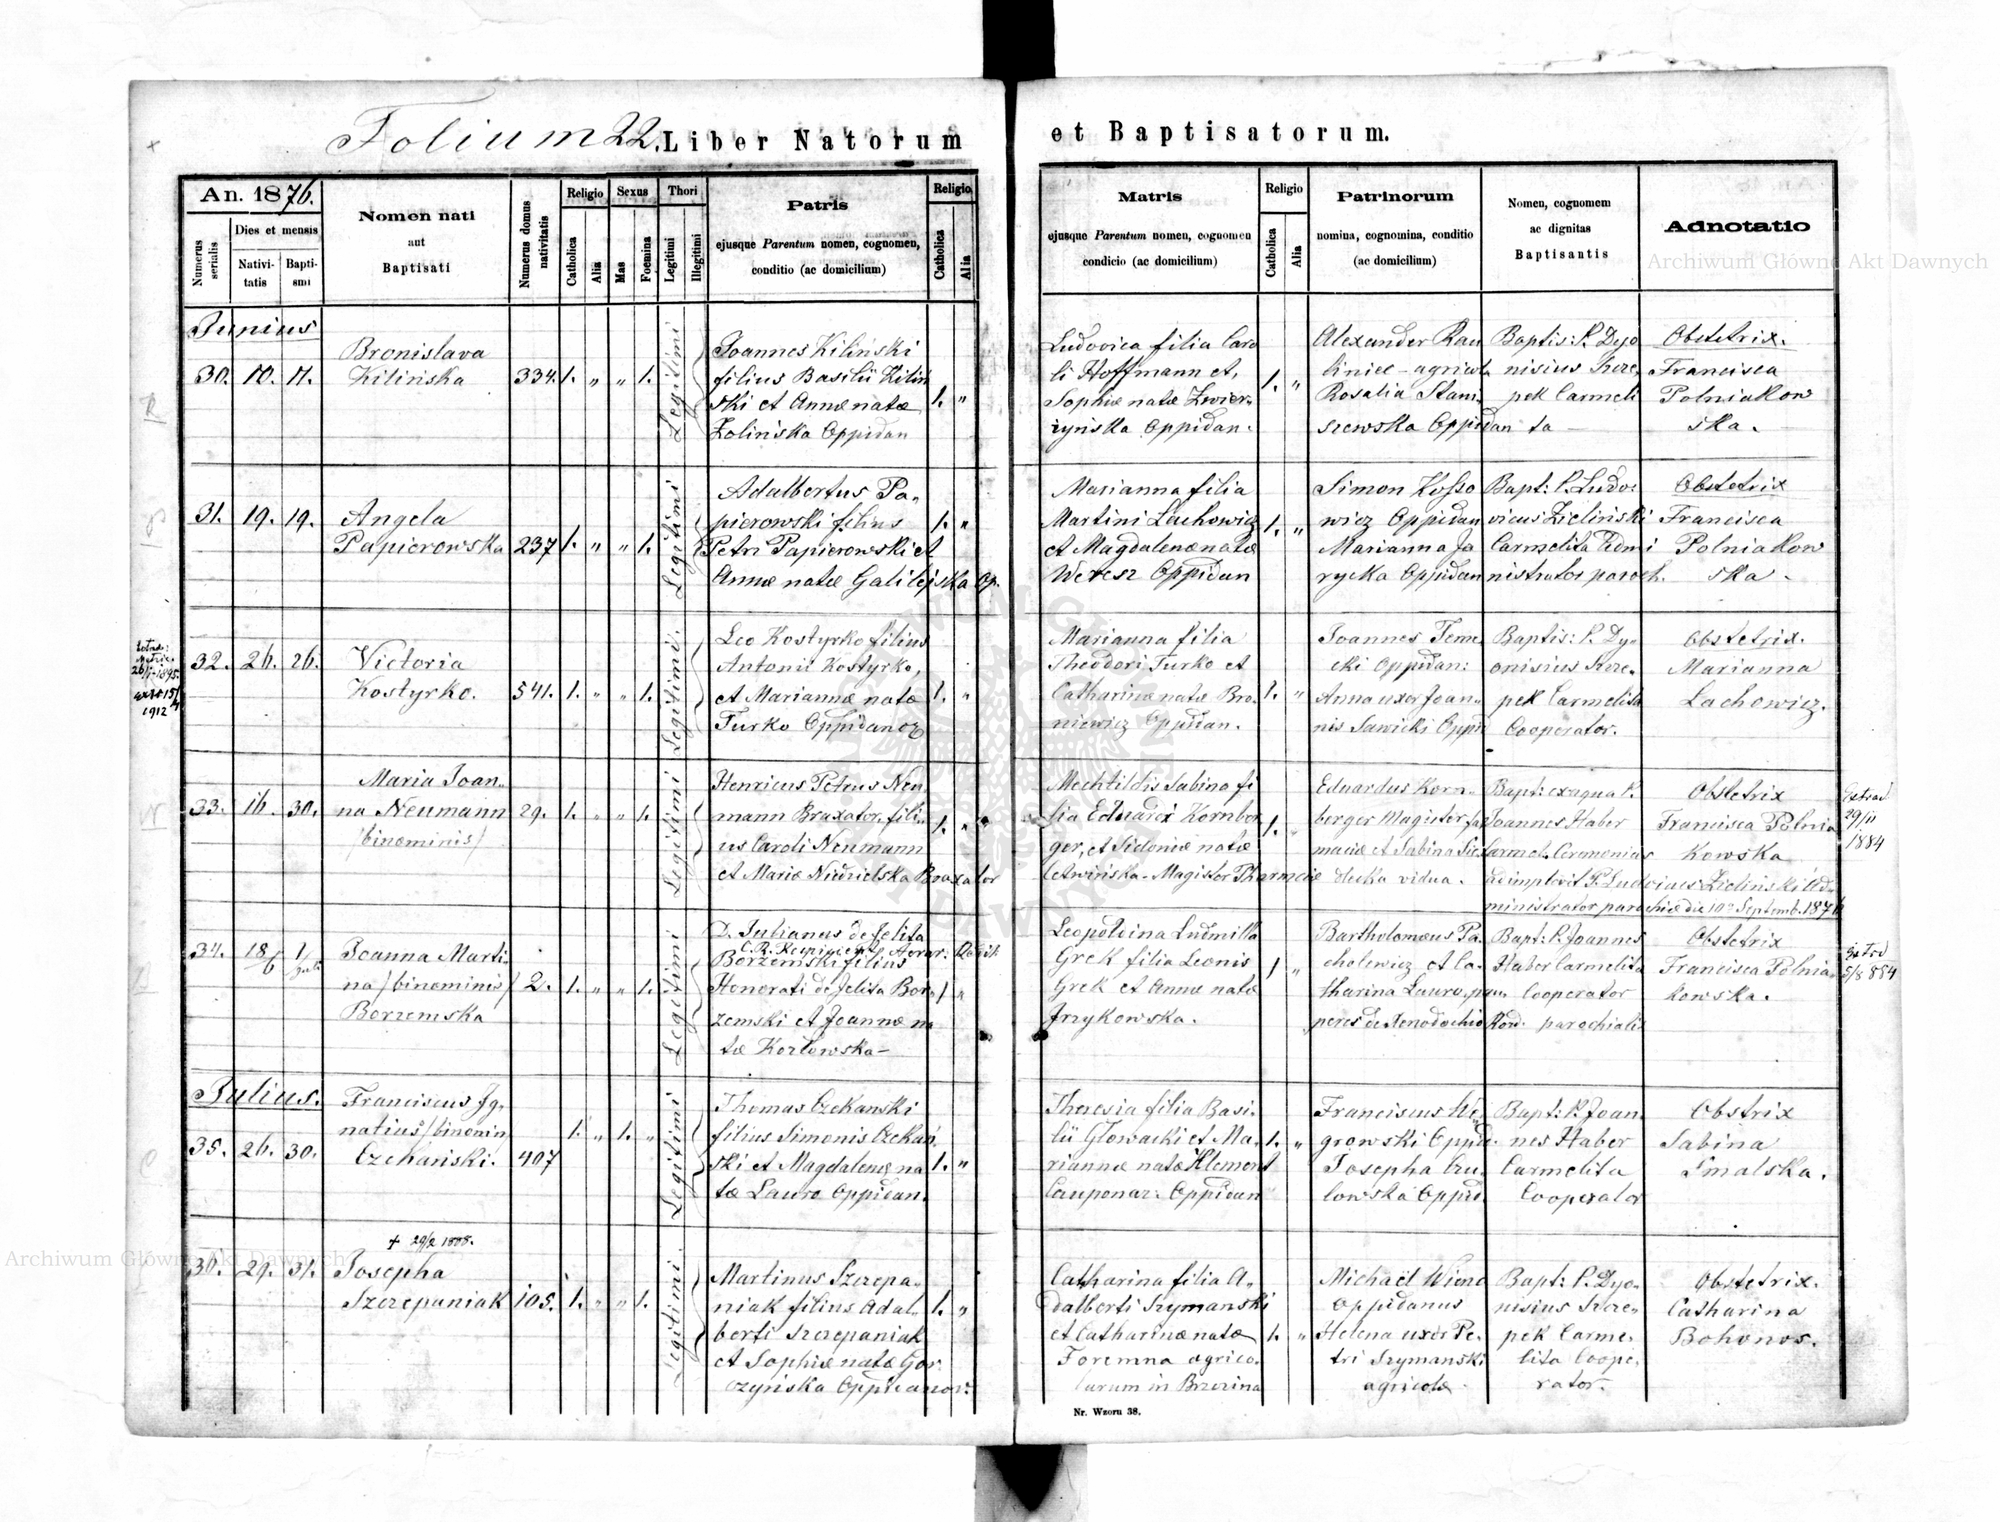 Folium 22. Liber Natorum et Baptisatorum.
An. 1876.
Numerus serialis
Dies et mensis
Nativitatis
Baptismi
Nomen nati
aut
Baptisati
Numerus domus nativitatis
Religio
Catholica
Alia
Sexus
Mas
Foemina
Thori
Legitimi
Illegitimi
Patris
ejusque Parentum nomen, cognomen,
conditio (ac domicilium)
Religio
Catholica
Alia
Matris
ejusque Parentum nomen, cognomen
condicio (ac domicilium)
Religio
Catholica
Alia
Patrinorum
nomina, cognomina, conditio
(ac domicilium)
Nomen, cognomem
ac dignitas
Baptisantis
Adnotatio
Archiwum Główne Akt Dawnych
Junius
30. 10. 11.
Bronislava
Kilińska 334. 1. „ „ 1.
Legitimi
Joannes Kiliński
filius Basilii Kiliń
ski et Annæ natæ
Zolińska Oppidan
1. „
Ludovica filia Caro
li Hoffmann et,
Sophiæ natæ Zwier-
zyńska Oppidan.
1. „
Alexander Rau
liniec - agricola
Rosalia Stani
szewska Oppidan
Baptis: P. Dyo
nisius Szcze
pek Carmeli
ta —
Obstetrix.
Francisca
Polniakow
ska.
31. 19. 19.
Angela
Papierowska 237 1. „ „ 1.
Legitimi
Adalbertus Pa-
pierowski filius
Petri Papierowski et
Annæ natæ Galilejska Op.
1. „
Marianna filia
Martini Lachowicz
et Magdalenæ natæ
Weresz Oppidan
1. „
Simon Kosso
wicz Oppidan
Marianna Ja
rycka Oppidan
Bapt: P. Ludo-
vicus Zieliński
Carmelita Admi
nistrator paroch.
Obstetrix
Francisca
Polniakow
ska.
26/1 1895.
1912
32. 26. 26.
Victoria
Kostyrko. 541. 1. „ „ 1.
Legitimi.
Leo Kostyrko filius
Antonii Kostyrko,
et Mariannæ natæ
Turko Oppidanor
1. „
Marianna filia
Theodori Turko et
Catharinæ natæ Bro-
niewicz Oppidan.
1. „
Joannes Teme
cki Oppidan:
Anna uxor Joan-
nis Sawicki Oppid
Baptis: P. Dy-
onisius Szcze-
pek Carmelita
Cooperator.
Obstetrix.
Marianna
Lachowicz.
33. 16. 30.
Maria Joan-
na Neumann 29. 1. „ „ 1.
/binominis/
Legitimi
Henricus Petrus Neu
mann Braxator, fili-
us Caroli Neumann
et Mariæ Niedzielska Braxator
1. „
Mechtildis Sabina fi
lia Eduardi Kornber
ger, et Sidoniæ natæ
Letwińska - Magister Pharmaciæ
1. „
Eduardus Korn-
berger Magister far
maciæ et Sabina Sie
decka vidua.
Bapt: ex aqua P.
Joannes Haber
Carmel. Ceremonias
adimplevit P. Ludovicus Zieliński Ad-
ministrator parochiæ die 10 Septemb. 1876
Obstetrix
Francisca Polnia
kowska
Extrad
29/11
1884
34. 18/6 1/Juli
Joanna Marti-
na /binominis/ 2. 1. „ „ 1.
Borzemska
Legitimi
D. Julianus de Jelita
Borzemski filius
Honorati de Jelita Bor-
zemski et Joannæ na
tæ Kozłowska —
1 „
Leopoldina Ludmilla
Grek filia Leonis
Grek et Annæ natæ
Jrzykowska.
1 „
Bartholomæus Pa
cholewicz et Ca-
tharina Lauro, pau
peres de Xenodochio
Bapt: P. Joannes
Haber Carmelita
Cooperator
parochialis
Obstetrix
Francisca Polnia-
kowska.
Extrd
5/8 884
Julius.
35. 26. 30.
Franciscus Jg-
natius /binomin
Czekański. 407 1. „ 1. „
Legitimi
Thomas Czekanski
filius Simonis Czekań
ski et Magdalenæ na
tæ Lauro Oppidan.
1. „
Theresia filia Basi-
lii Głowacki et Ma-
riannæ natæ Klement
Cauponar: Oppidan
1. „
Franciscus We-
growski Oppid.
Josepha Cru-
lowska Oppid
Bapt: P. Joan-
nes Haber
Carmelita
Cooperator
Obstrix
Sabina
Smalska.
+ 29/2 1888.
36. 29. 31.
Josepha
Szczepaniak 105. 1. „ „ 1.
Legitimi.
Martinus Szczepa-
niak filius Adal-
berti Szczepaniak
et Sophiæ natæ Gor
czyńska Oppidanor.
1. „
Catharina filia A-
dalberti Szymanski
et Catharinæ natæ
Foremna agrico-
larum in Brzezina
1. „
Michaël Wiene
Oppidanus
Helena uxor Pe-
tri Szymanski
agricolæ
Bapt: P. Dyo-
nisius Szcze-
pek Carme-
lita Coope-
rator.
Obstetrix.
Catharina
Bohonos.
Archiwum Główne Akt Dawnych
Nr. Wzoru 38.